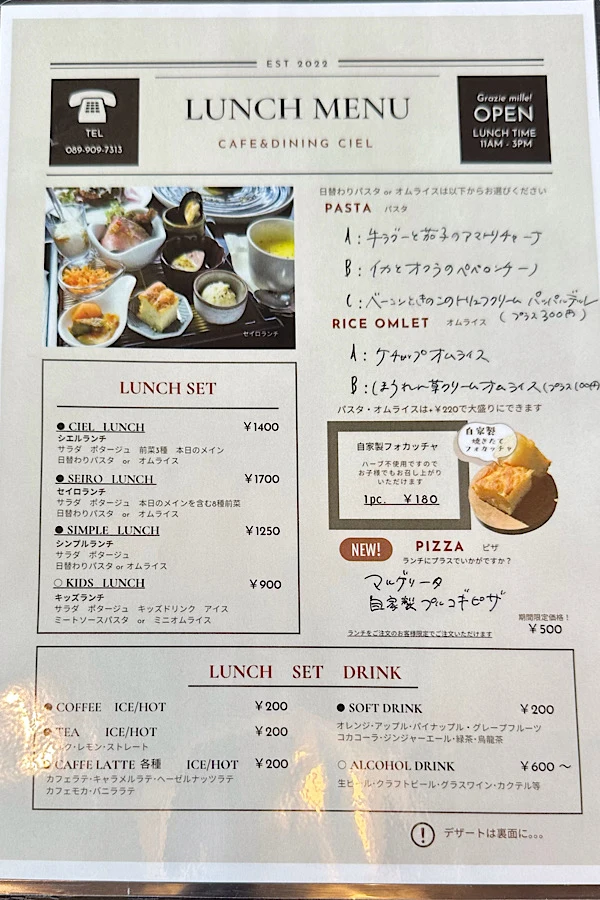 EST 2022
TEL
089-909-7313
LUNCH MENU
CAFE&DINING CIEL
Grazie mille!
OPEN
LUNCH TIME
11AM - 3PM
セイロランチ
日替わりパスタ or オムライスは以下からお選びください
PASTA パスタ
A:牛ラグーと茄子のアマトリチャーナ
B:イカとオクラのペペロンチーノ
C:ベーコンときのこのトリュフクリーム パッパルデッレ
(プラス300円)
RICE OMLET オムライス
A:ケチャップオムライス
B:ほうれん草クリームオムライス(プラス100円)
パスタ・オムライスは+¥220で大盛りにできます
LUNCH SET
●CIEL LUNCH ¥1400
シエルランチ
サラダ ポタージュ 前菜3種 本日のメイン
日替わりパスタ or オムライス
●SEIRO LUNCH ¥1700
セイロランチ
サラダ ポタージュ 本日のメインを含む8種前菜
日替わりパスタ or オムライス
●SIMPLE LUNCH ¥1250
シンプルランチ
サラダ ポタージュ
日替わりパスタ or オムライス
○KIDS LUNCH ¥900
キッズランチ
サラダ ポタージュ キッズドリンク アイス
ミートソースパスタ or ミニオムライス
自家製フォカッチャ
ハーブ不使用ですので
お子様でもお召し上がり
いただけます
1pc. ¥180
自家製
焼きたて
フォカッチャ
NEW!
PIZZA ピザ
ランチにプラスでいかがですか?
マルゲリータ
自家製プルコギピザ
期間限定価格!
¥500
ランチをご注文のお客様限定でご注文いただけます
LUNCH SET DRINK
●COFFEE ICE/HOT ¥200
●TEA ICE/HOT ¥200
レモン・ストレート
●CAFFE LATTE 各種 ICE/HOT ¥200
カフェラテ・キャラメルラテ・ヘーゼルナッツラテ
カフェモカ・バニララテ
●SOFT DRINK ¥200
オレンジ・アップル・パイナップル・グレープフルーツ
コカコーラ・ジンジャーエール・緑茶・烏龍茶
○ALCOHOL DRINK ¥600～
生ビール・クラフトビール・グラスワイン・カクテル等
! デザートは裏面に。。。